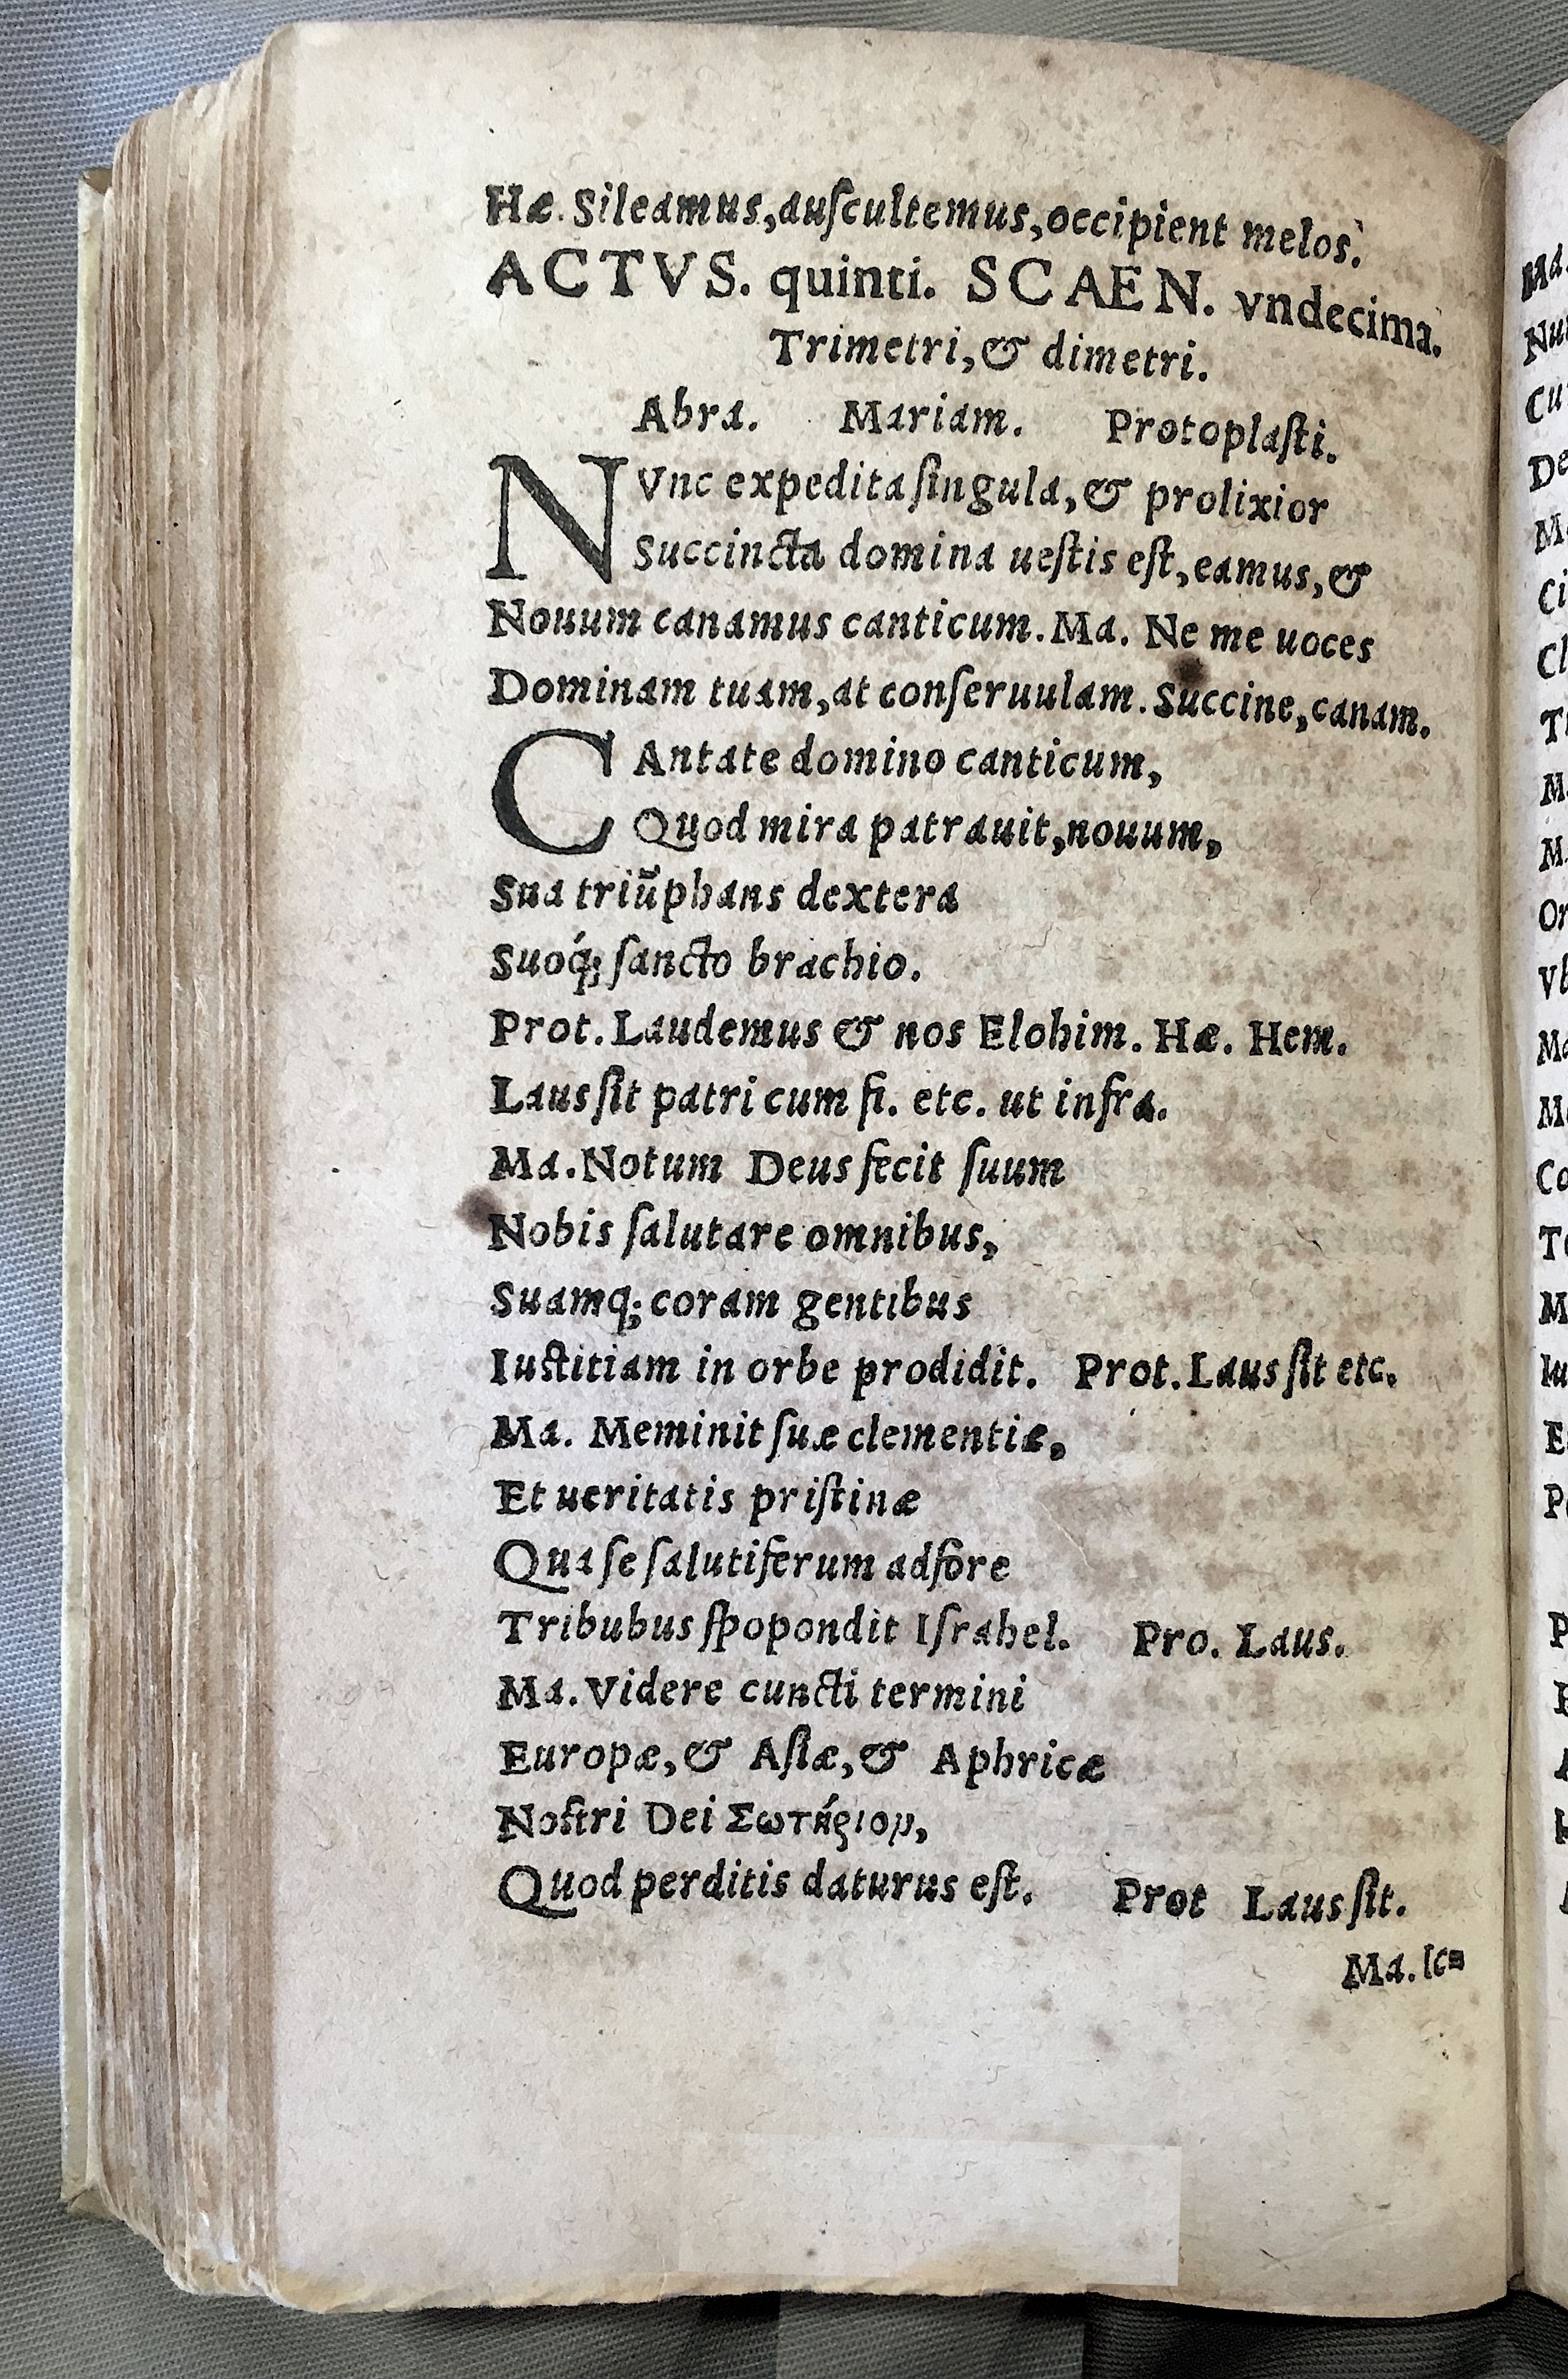 Hæ. Sileamus, auſcultemus, occipient melos.
ACTVS. quinti. SCAEN. vndecima.
Trimetri, & dimetri.
Abra. Mariam. Protoplaſti.
NVnc expedita ſingula, & prolixior
Succincta domina ueſtis eſt, eamus, &
Nouum canamus canticum. Ma. Ne me uoces
Dominam tuam, at conſeruulam. Succine, canam.
CAntate domino canticum,
Quod mira patrauit, nouum,
Sua triũphans dextera
Suoq́; ſancto brachio.
Prot. Laudemus & nos Elohim. Hæ. Hem.
Laus ſit patri cum fi. etc. ut infra.
Ma. Notum Deus fecit ſuum
Nobis ſalutare omnibus,
Suamq; coram gentibus
Iuſtitiam in orbe prodidit. Prot. Laus ſit etc.
Ma. Meminit ſuæ clementiæ,
Et ueritatis priſtinæ
Qua ſe ſalutiferum adfore
Tribubus ſpopondit Iſrahel. Pro. Laus.
Ma. Videre cuncti termini
Europæ, & Aſiæ, & Aphricæ
Noſtri Dei Σωτήριον,
Quod perditis daturus eſt. Prot Laus ſit.
Ma.